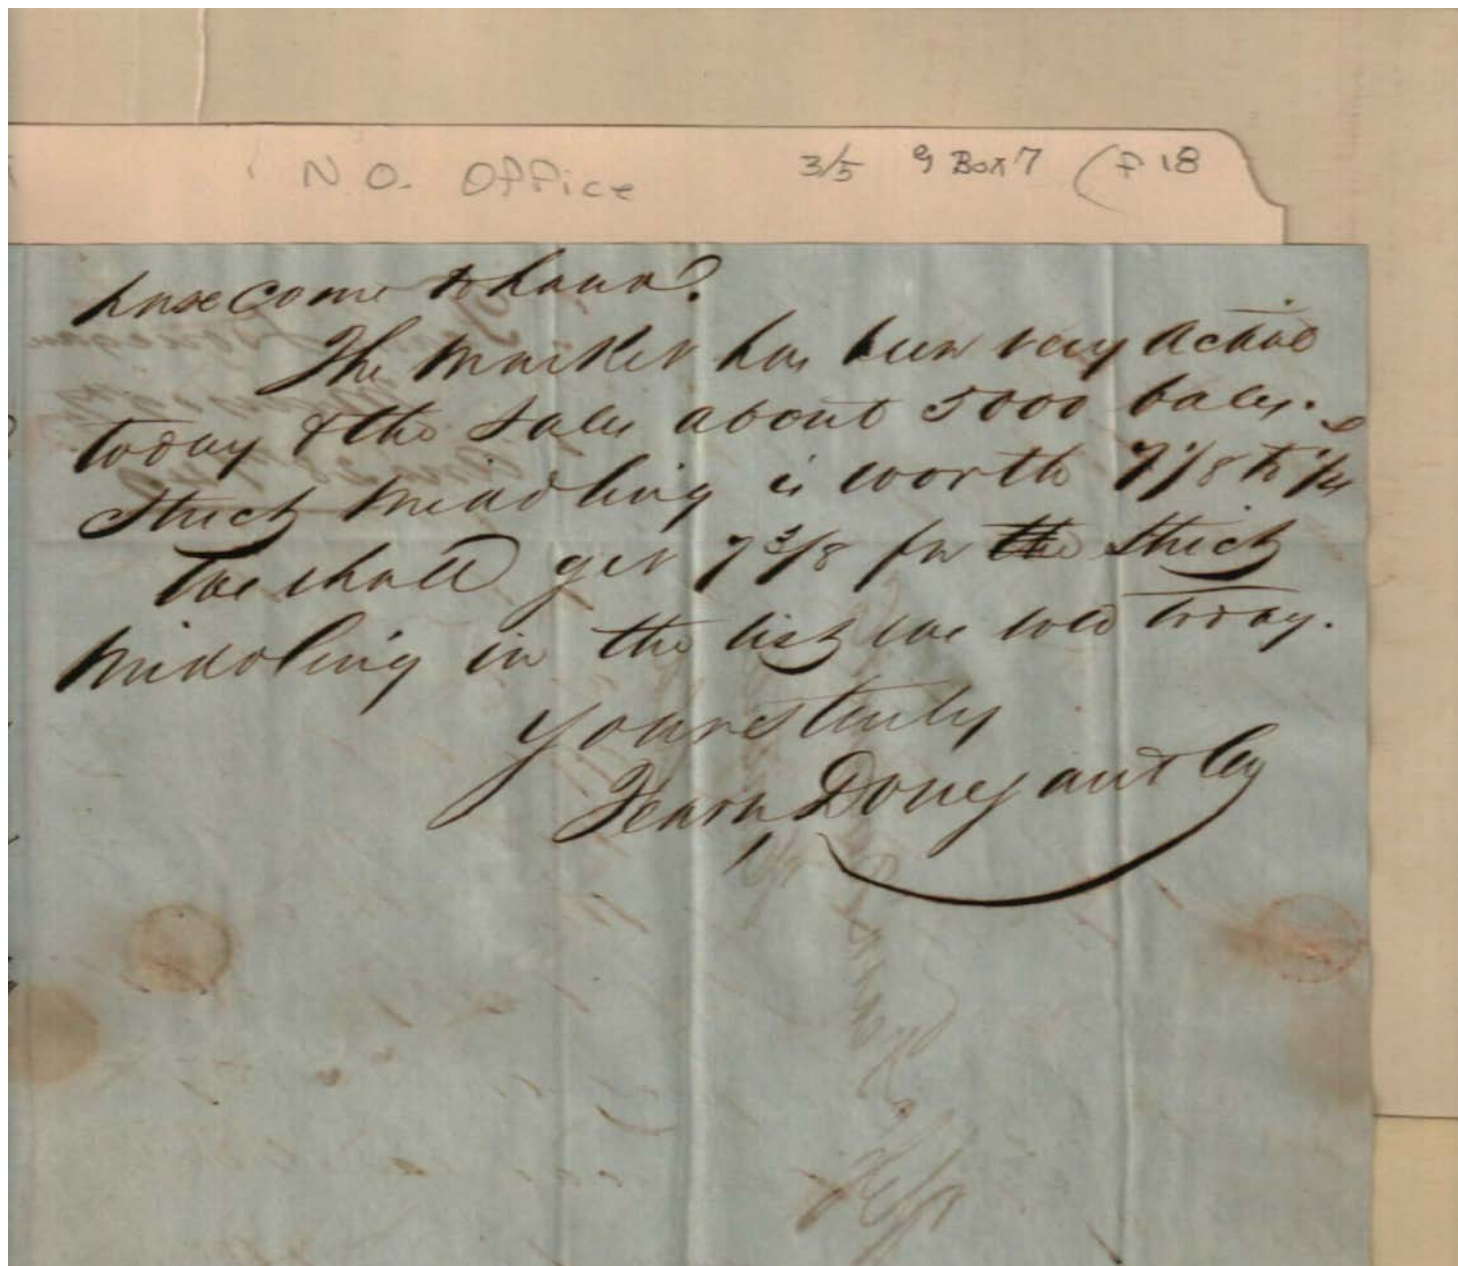 N.O. Office 3/5 9 Box 7 (F 18
have come to hand?
The market has been very active
today & the sales about 5000 bales.
Strict middling is worth 7 1/8 to 1/4
We shall get 7 3/8 for the strict
middling in the list we sold today.
Yours truly
Fearn, Donegan & Co